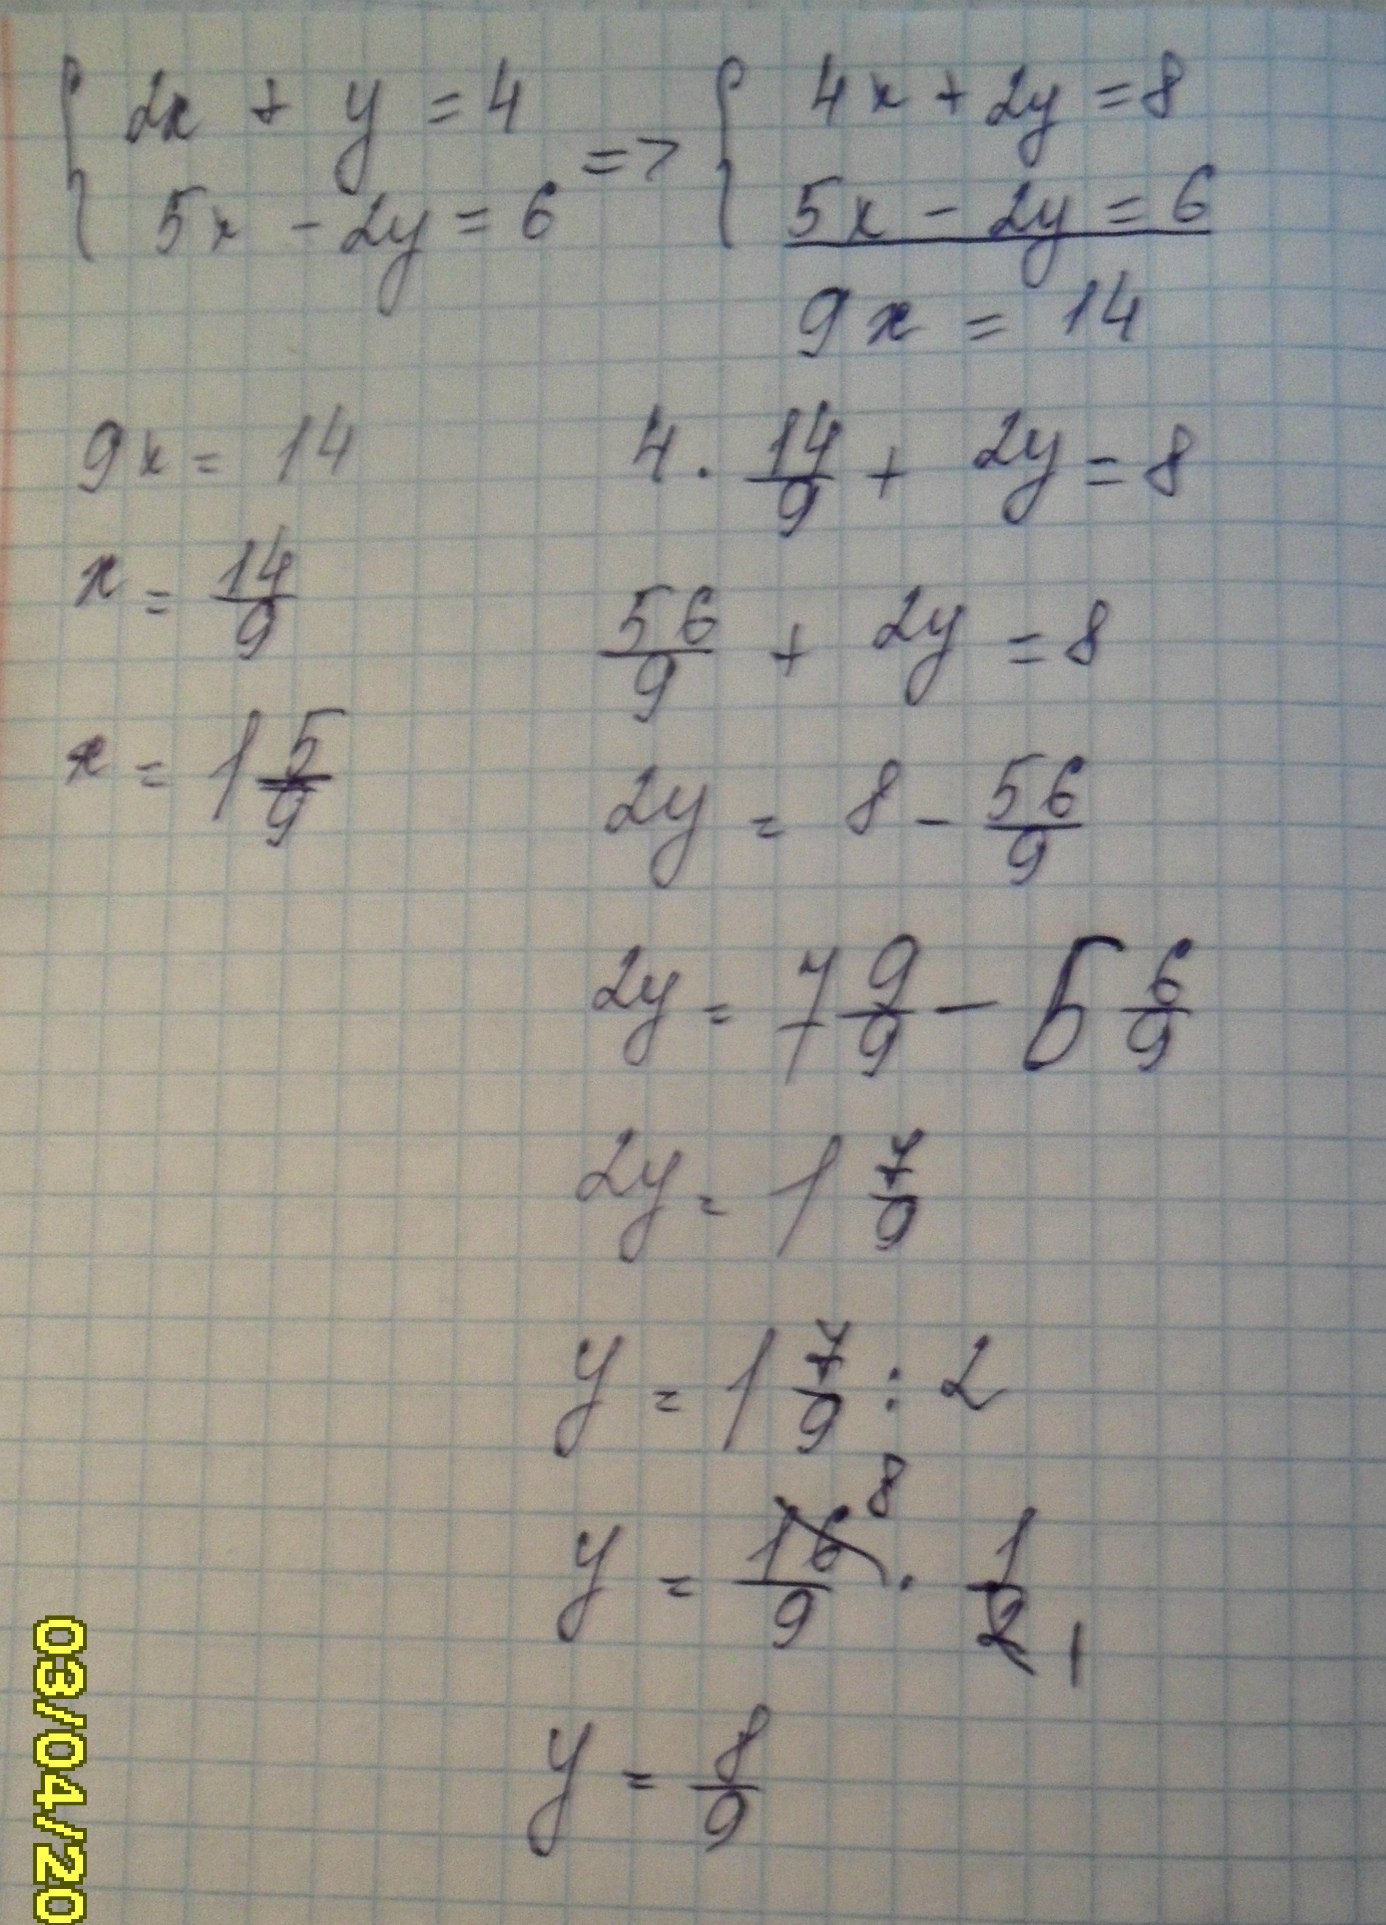 { 2x + y = 4 => { 4x + 2y = 8
5x - 2y = 6 5x - 2y = 6
9x = 14
9x = 14
x = 14/9
x = 1 5/9
4 · 14/9 + 2y = 8
56/9 + 2y = 8
2y = 8 - 56/9
2y = 7 9/9 - 6 6/9
2y = 1 7/9
y = 1 7/9 : 2
y = 16/9 8 · 1/2 1
y = 8/9
03/04/20